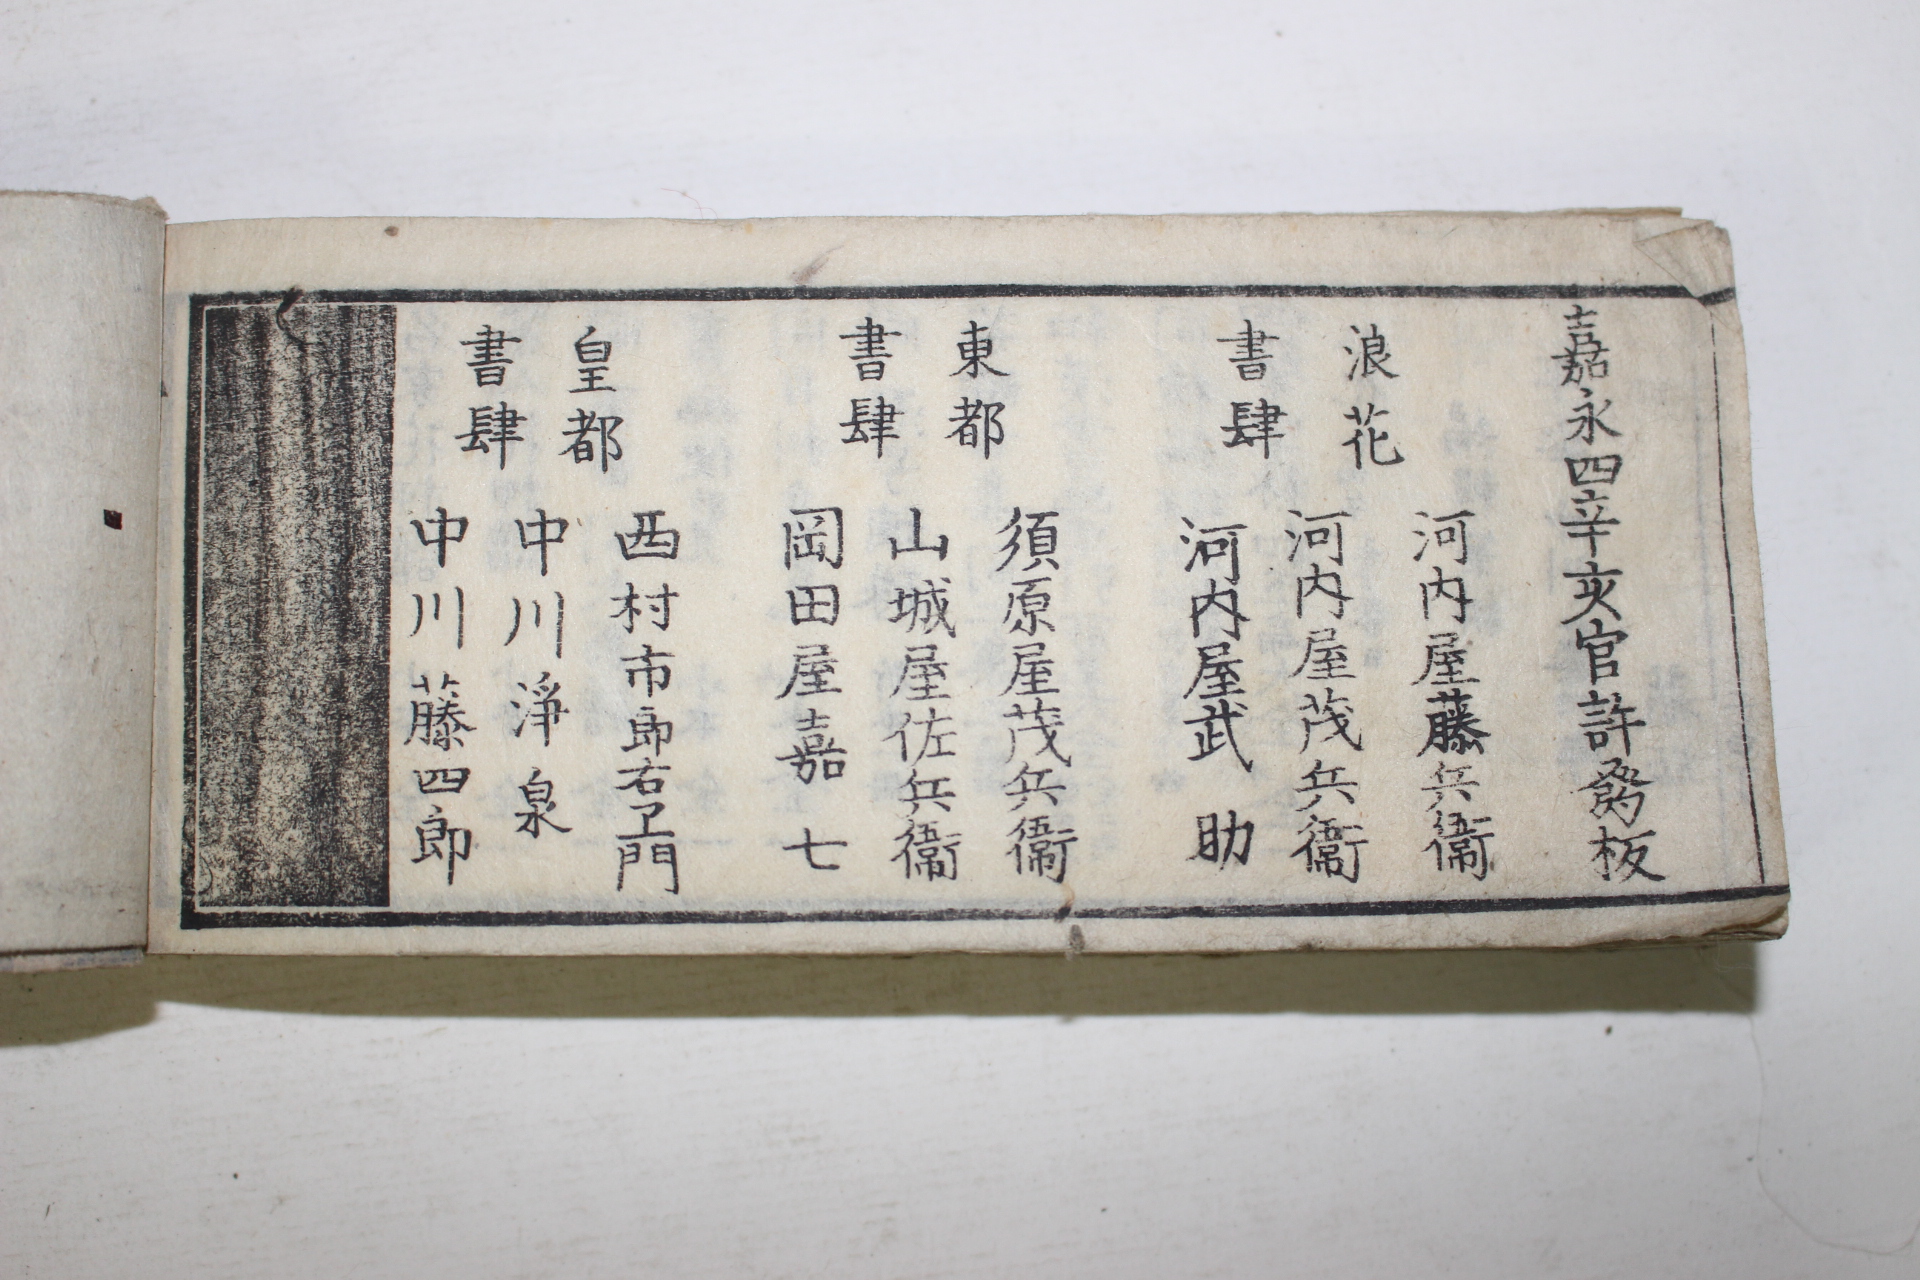 嘉永四辛亥官許發板
浪花
書肆
河内屋藤兵衞
河内屋茂兵衞
河内屋武助
東都
書肆
須原屋茂兵衞
山城屋佐兵衞
岡田屋嘉七
皇都
書肆
西村市郎右衛門
中川淨泉
中川藤四郎